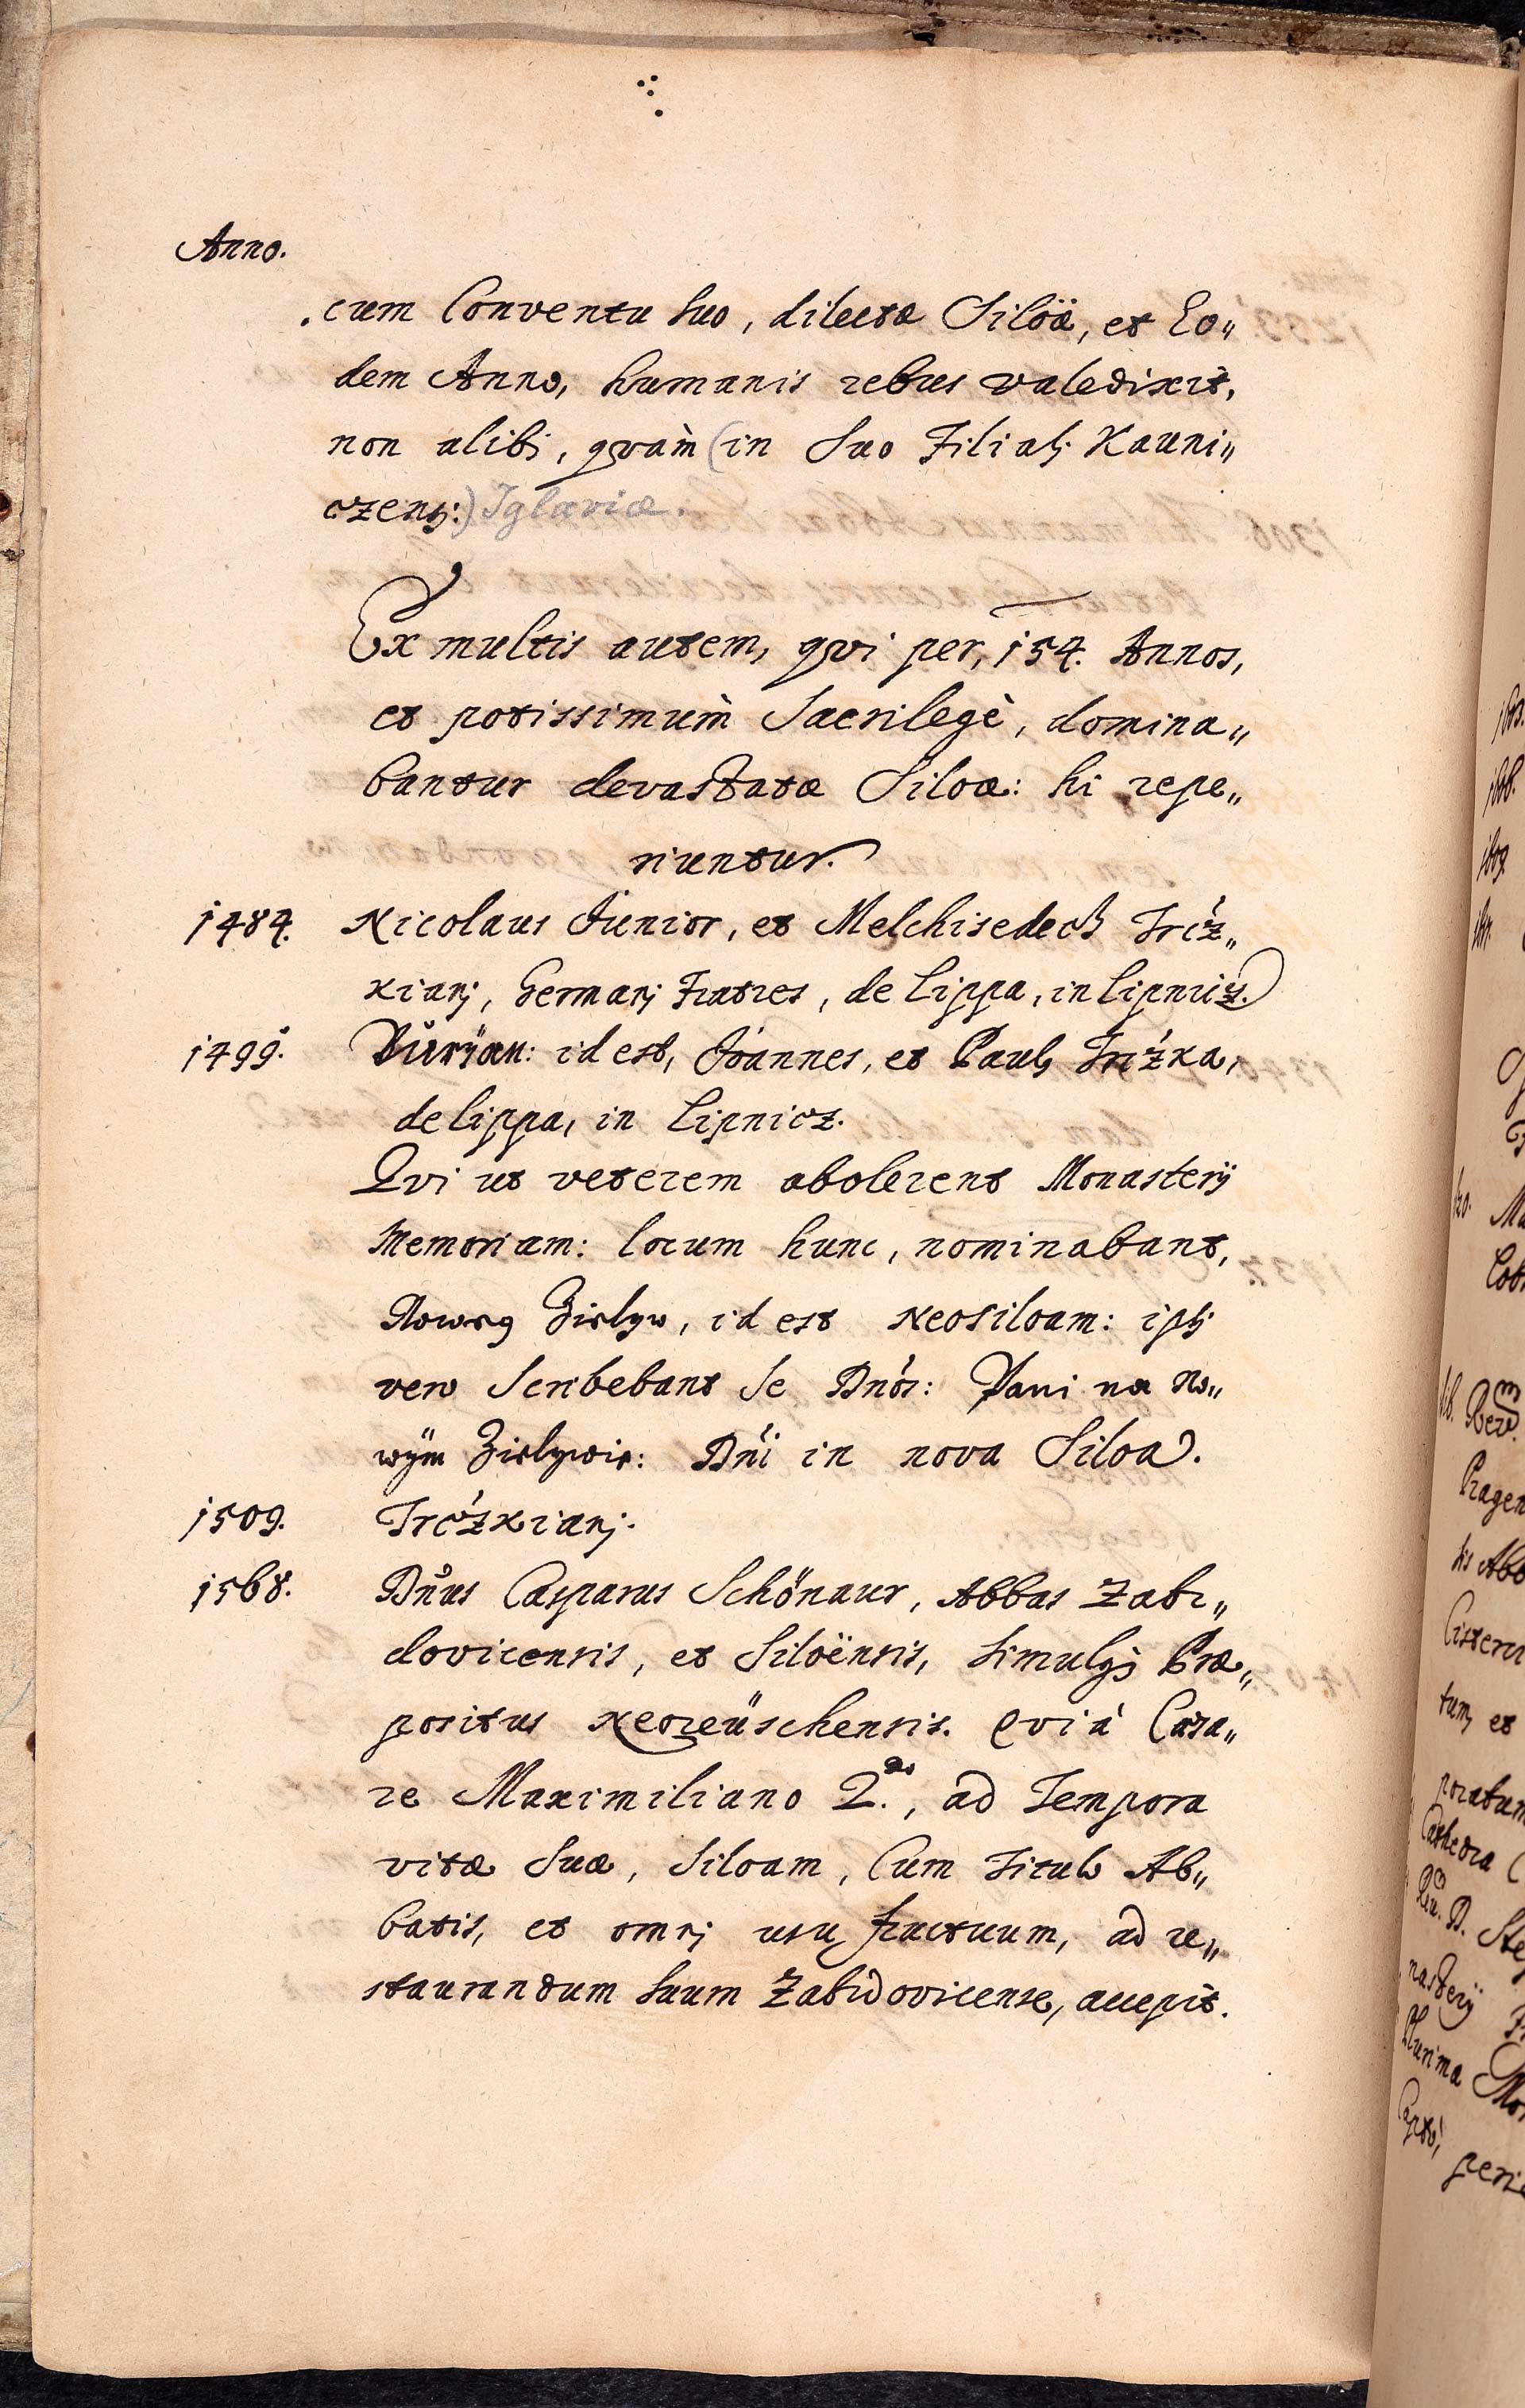 Anno.
cum Conventu suo, dilectæ Siloæ, et Eo„
dem Anno, humanis rebus valedixit,
non alibi, qvam̀ (in suo Filiali Kauni„
czensi:) Iglaviæ.
Ex multis autem, qvi per, 154. Annos,
et potissimum̀ Sacrilegè, domina„
bantur devastatæ Siloæ: hi repe„
riuntur.
1484. Nicolaus Junior, et Melchisedech Trcż„
kiani, Germani Fratres, de Lippa, in Lipnicz.
1499. Burian: id est, Joannes, et Paulus Trczka,
de Lippa, in Lipnicz.
Qvi ut veterem abolerent Monasterij
Memoriam: locum hunc, nominabant,
Nowey Zielyw, id est Neosiloam: ipsi
vero scribebant se Dnós: Pani na No„
wÿm Zielywie: Dńi in nova Siloa.
1509. Trczkiani.
1568. Dńus Casparus Schönaur, Abbas Zabr„
dovicensis, et Siloënsis, simulqȝ Præ„
positus Neoreüschensis. Qvi à Cæsa„
re Maximiliano 2.do, ad Tempora
vitæ suæ, Siloam, Cum Titulo Ab„
batis, et omni usu fructuum, ad re„
staurandum suum Zabrdovicense, accepit.